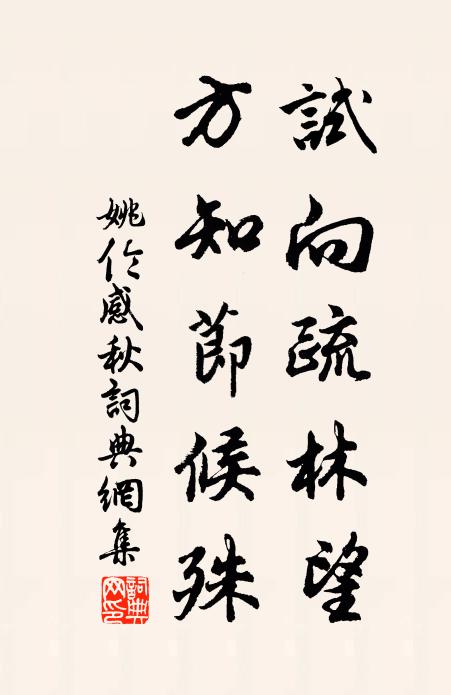 試向疏林望
方知節候殊
姚伦感秋詞典網集
詞典網印